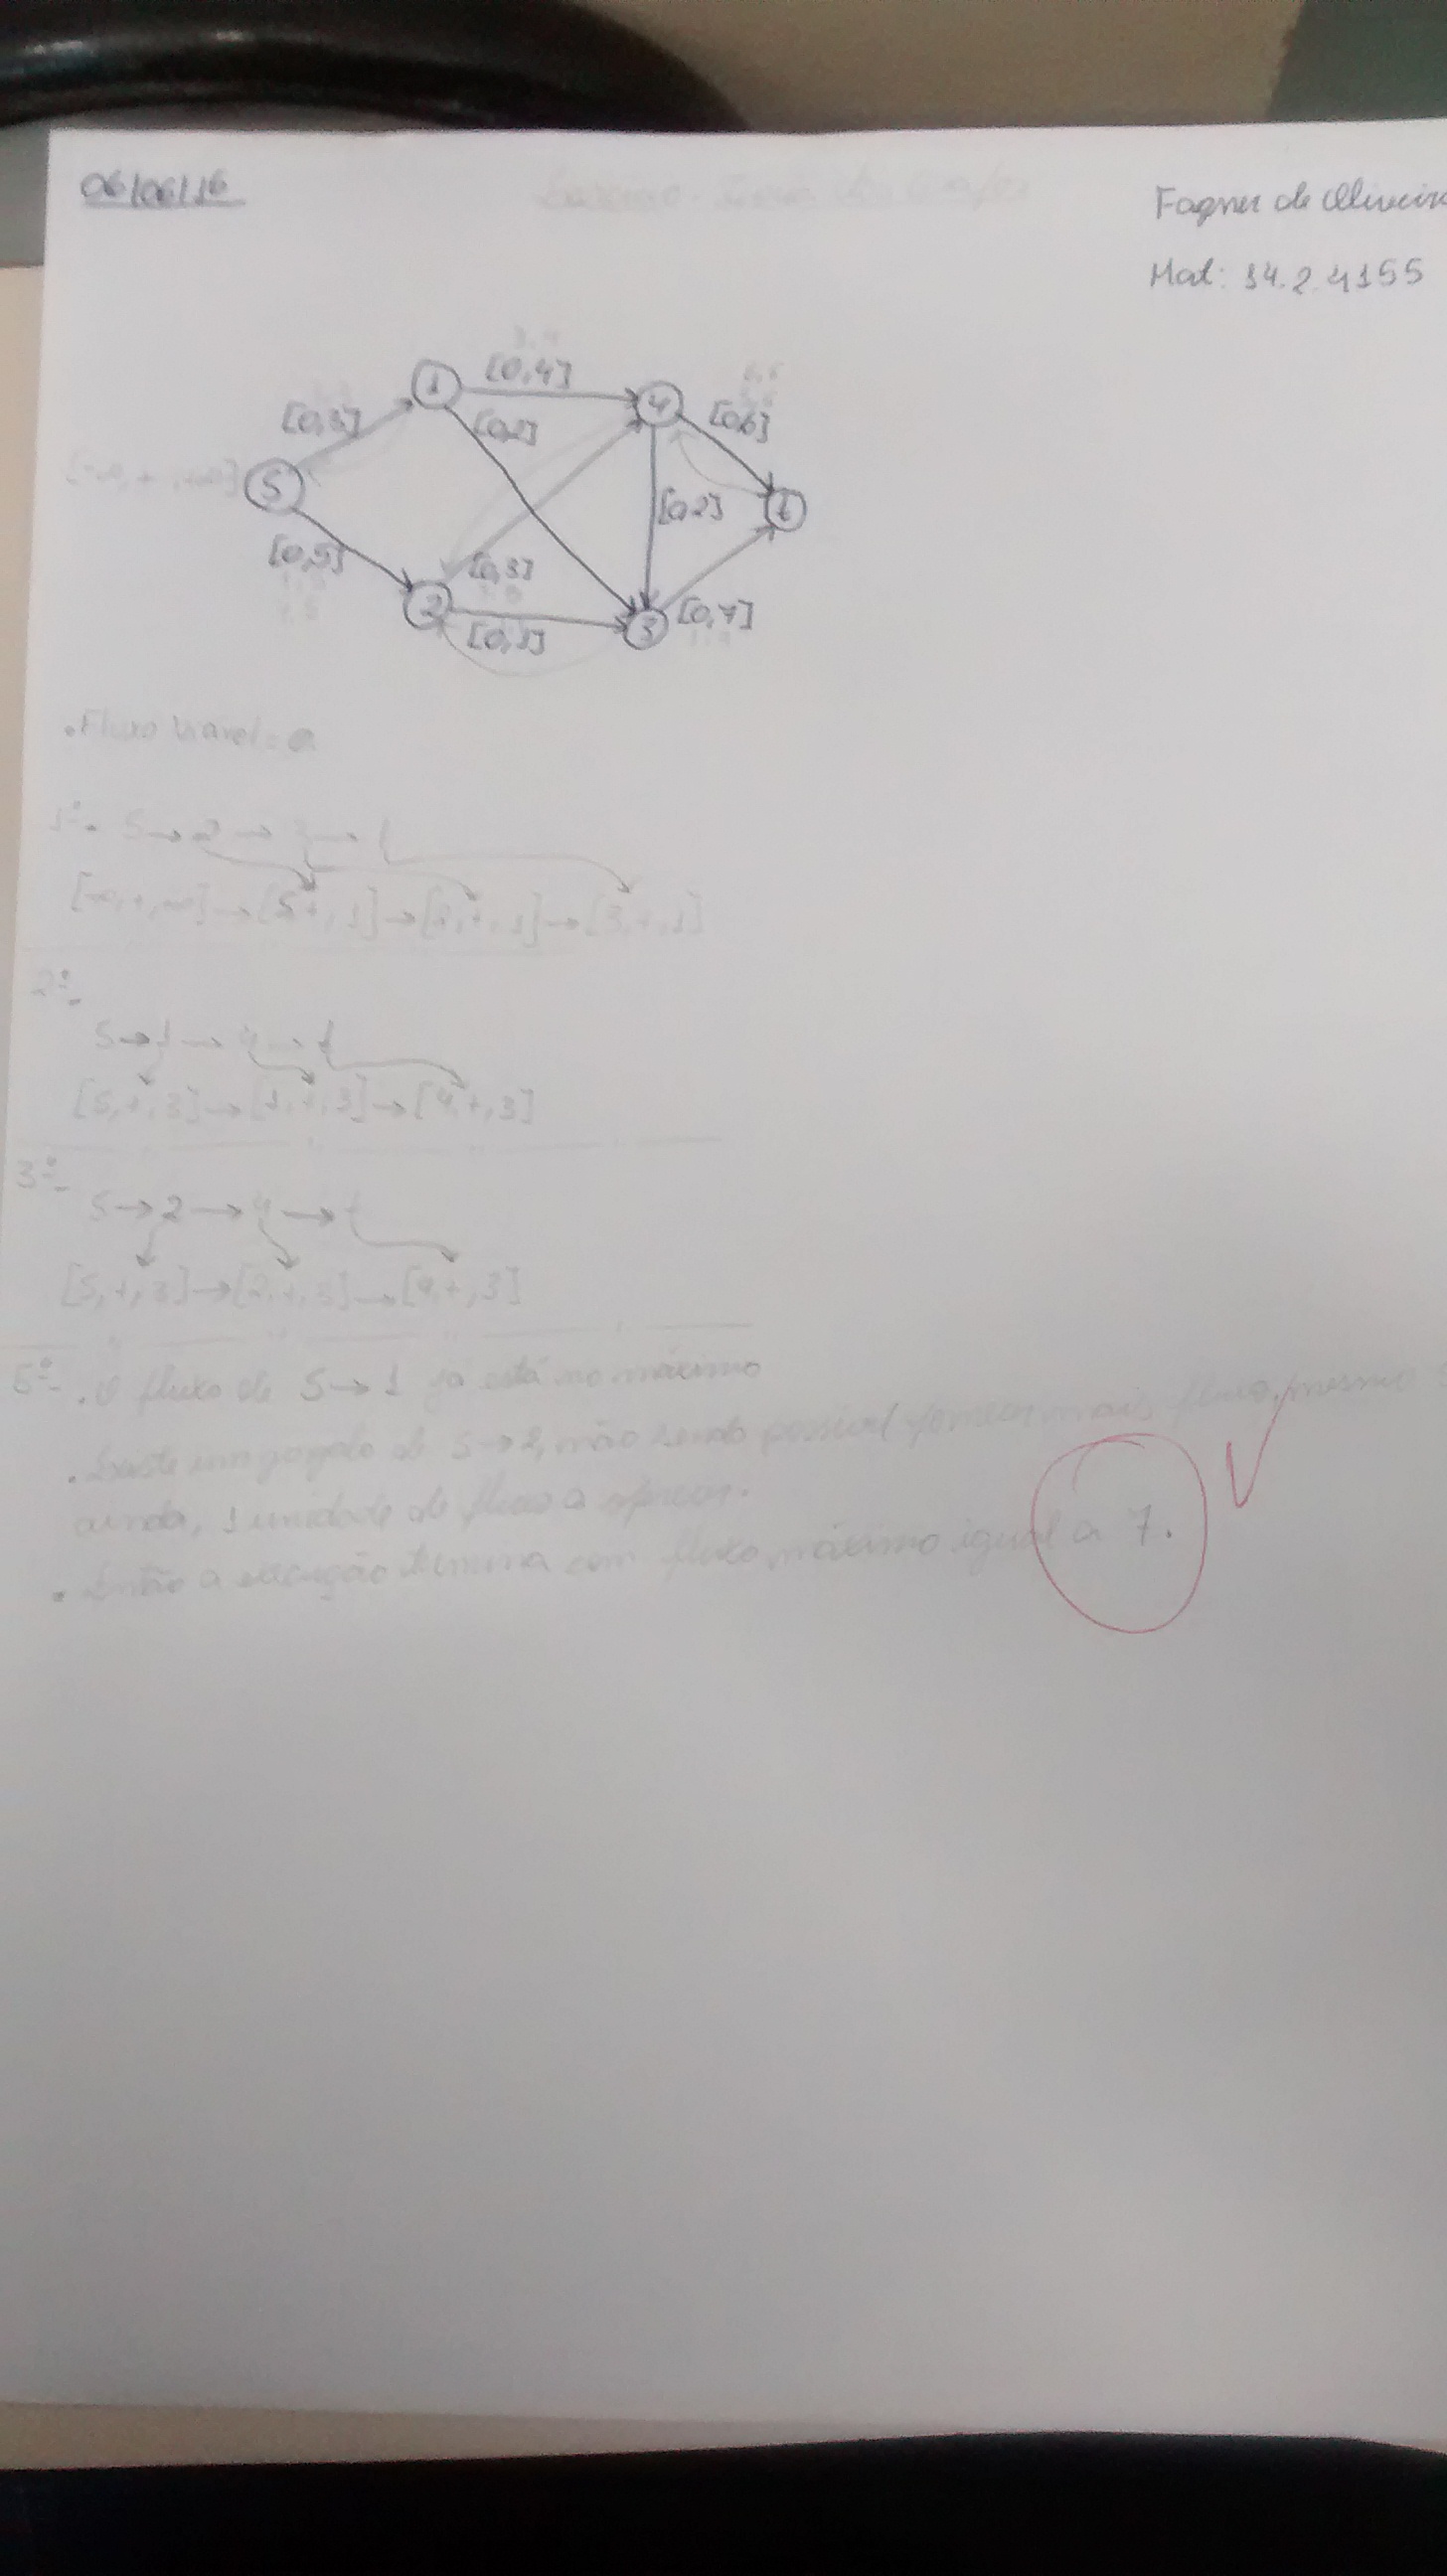 06/06/16
Fagner de Oliveira
Mat: 14.2.4155
[0,4]
1
4
[0,3]
[0,2]
[0,6]
S
t
[0,2]
[0,5]
[0,3]
2
3
[0,7]
[0,1]
.Fluxo viavel = 0
1º. S → 2 → 3 → t
[-∞,+,+∞] → [S,+,1] → [2,+,1] → [3,+,1]
2º-
S → 1 → 4 → t
[S,+,3] → [1,+,3] → [4,+,3]
3º-
S → 2 → 4 → t
[S,+,3] → [2,+,3] → [4,+,3]
5º- . O fluxo de S → 1 já está no máximo
. Existe um gargalo de S → 2, não sendo possível mais fluxo, mesmo
ainda, 1 unidade de fluxo a
. Então a execução termina com fluxo máximo igual a 7.